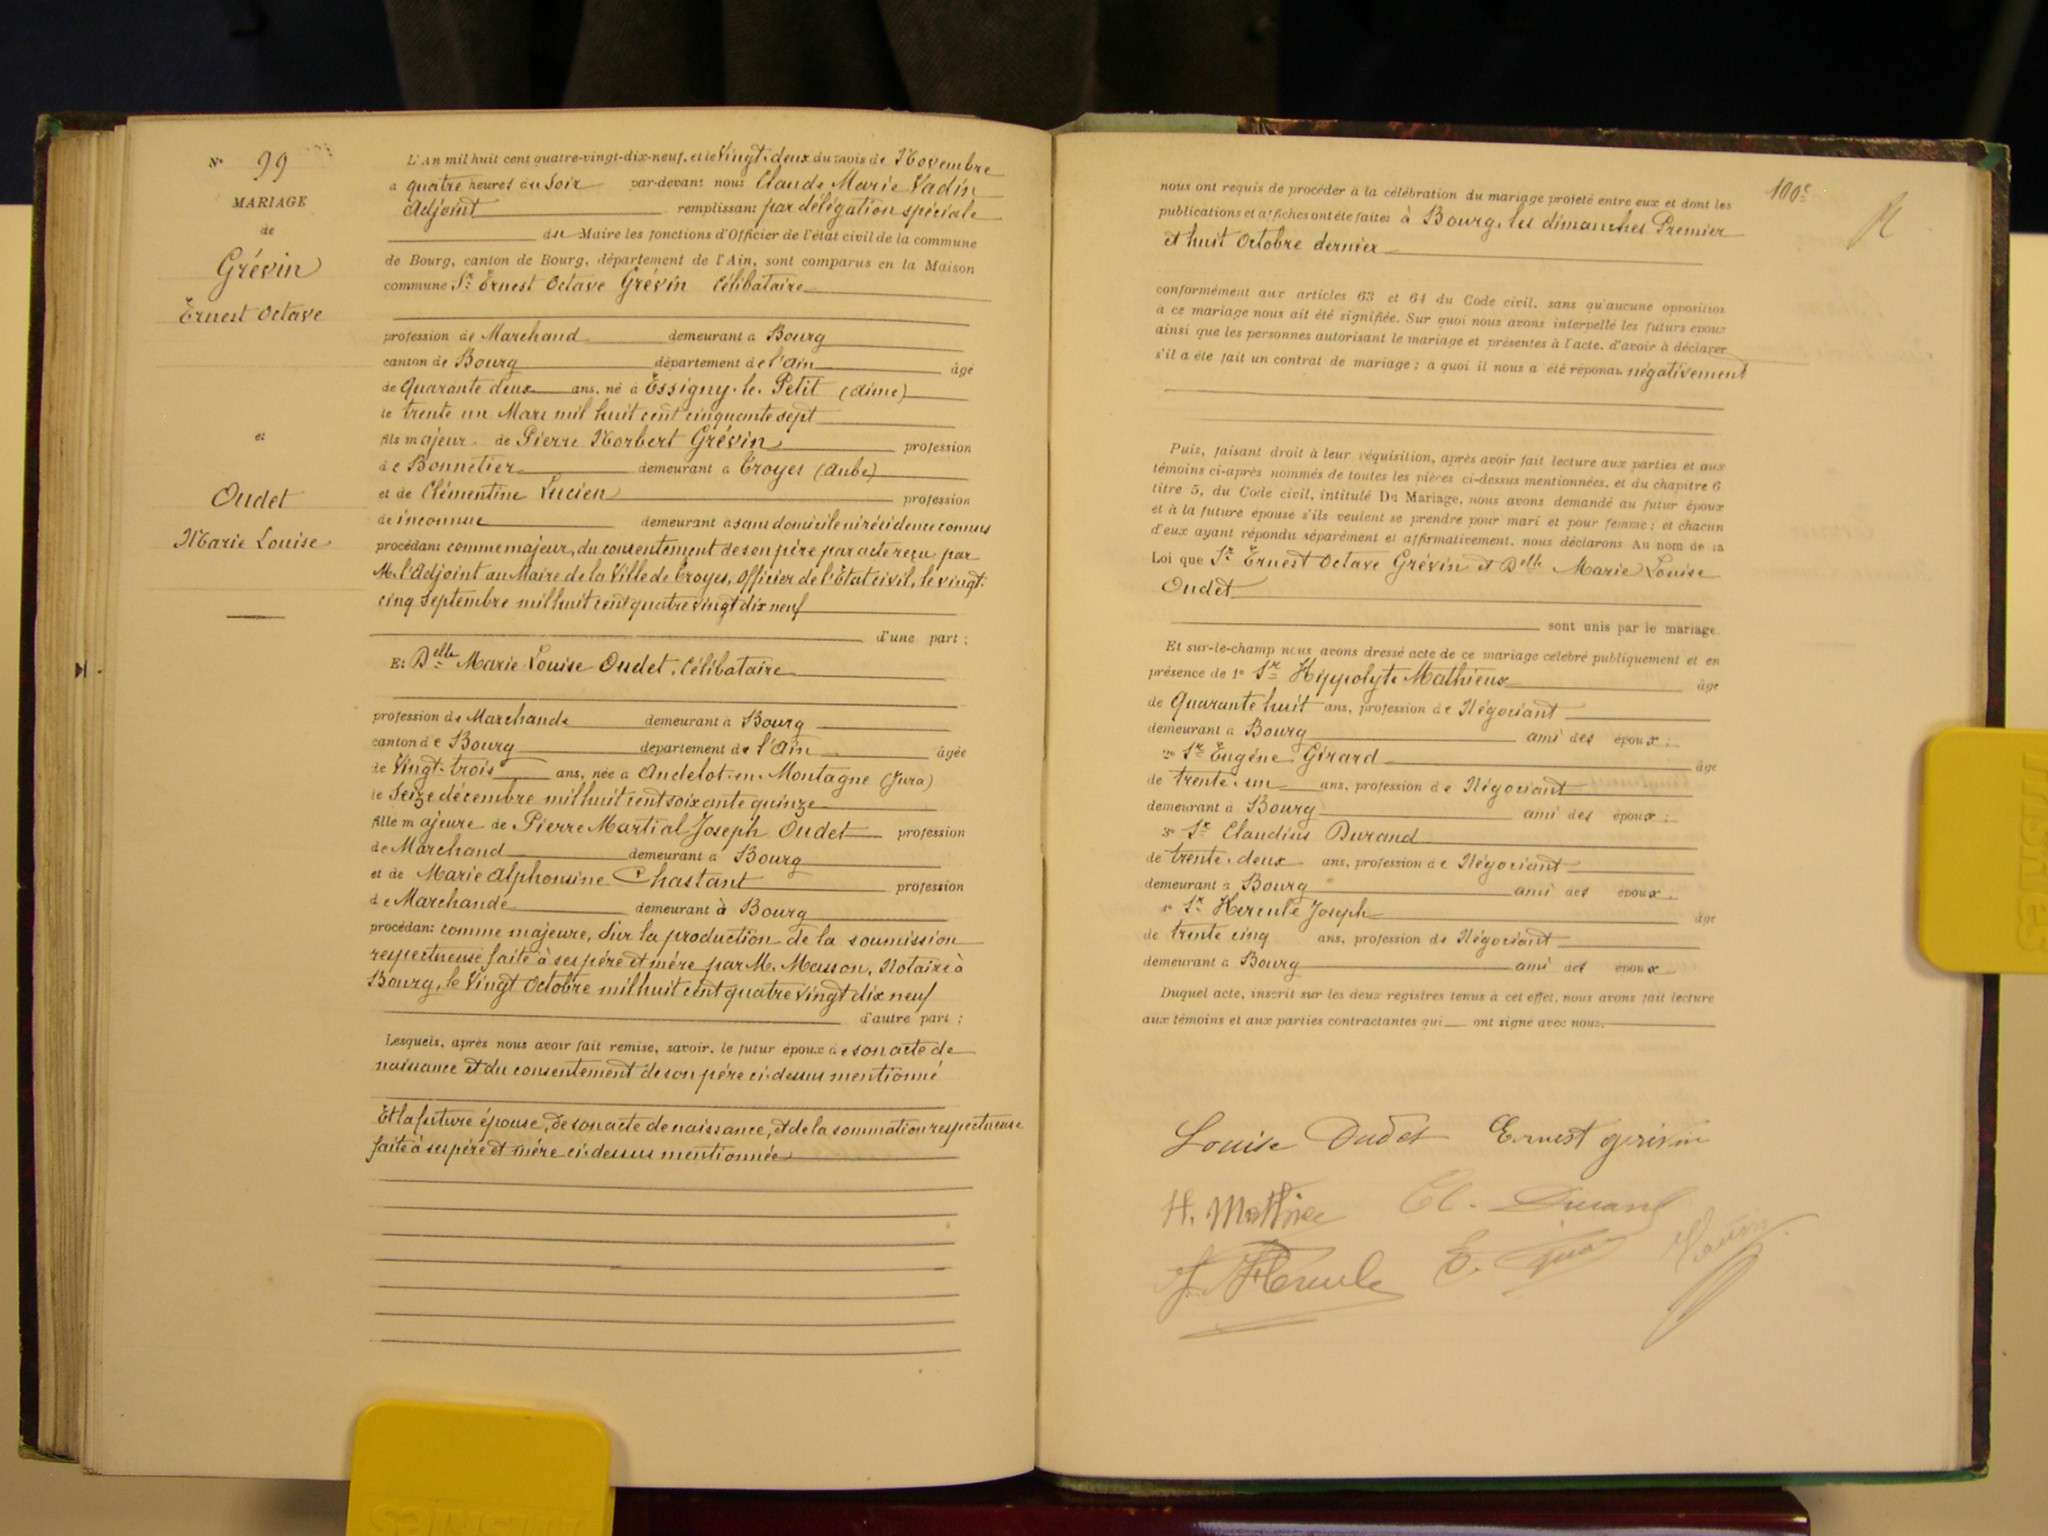 N° 99
MARIAGE
de
Grévin
Ernest Octave
et
Oudet
Marie Louise
L'An mil huit cent quatre-vingt-dix-neuf, et le Vingt-deux du mois de Novembre
à quatre heures du Soir par-devant nous Claude Marie Vadin
Adjoint remplissant par délégation spéciale
du Maire les fonctions d'Officier de l'état civil de la commune
de Bourg, canton de Bourg, département de l'Ain, sont comparus en la Maison
commune Sr Ernest Octave Grévin célibataire
profession de Marchand demeurant à Bourg
canton de Bourg département de l'Ain âgé
de Quarante deux ans, né à Essigny-le-Petit (Aisne)
le trente un Mars mil huit cent cinquante sept
fils majeur de Pierre Norbert Grévin profession
de Bonnetier demeurant à Troyes (Aube)
et de Clémentine Lucien profession
de inconnue demeurant à sans domicile ni résidence connus
procédant comme majeur, du consentement de son père par acte reçu par
M. l'Adjoint au Maire de la Ville de Troyes, Officier de l'Etat civil, le vingt-
cinq Septembre mil huit cent quatre vingt dix neuf
d'une part ;
Et Delle Marie Louise Oudet, célibataire
profession de Marchande demeurant à Bourg
canton de Bourg département de l'Ain âgée
de Vingt-trois ans, née à Andelot-en-Montagne (Jura)
le Seize décembre mil huit cent soixante quinze
fille majeure de Pierre Martial Joseph Oudet profession
de Marchand demeurant à Bourg
et de Marie Alphonsine Chastant profession
de Marchande demeurant à Bourg
procédant comme majeure, sur la production de la soumission
respectueuse faite à ses père et mère par M. Masson, Notaire à
Bourg, le Vingt Octobre mil huit cent quatre vingt dix neuf
d'autre part ;
Lesquels, après nous avoir fait remise, savoir, le futur époux de son acte de
naissance et du consentement de son père ci-dessus mentionné
Et la future épouse, de son acte de naissance, et de la sommation respectueuse
faite à ses père et mère ci-dessus mentionnée
100e
nous ont requis de procéder à la célébration du mariage projeté entre eux et dont les
publications et affiches ont été faites à Bourg, les dimanches Premier
et huit Octobre dernier
conformément aux articles 63 et 64 du Code civil, sans qu'aucune opposition
à ce mariage nous ait été signifiée. Sur quoi nous avons interpellé les futurs époux
ainsi que les personnes autorisant le mariage et présentes à l'acte, d'avoir à déclarer
s'il a été fait un contrat de mariage ; à quoi il nous a été répondu négativement
Puis, faisant droit à leur réquisition, après avoir fait lecture aux parties et aux
témoins ci-après nommés de toutes les pièces ci-dessus mentionnées, et du chapitre 6
titre 5, du Code civil, intitulé Du Mariage, nous avons demandé au futur époux
et à la future épouse s'ils veulent se prendre pour mari et pour femme ; et chacun
d'eux ayant répondu séparément et affirmativement, nous déclarons Au nom de la
Loi que Sr Ernest Octave Grévin et Delle Marie Louise
Oudet
sont unis par le mariage.
Et sur-le-champ nous avons dressé acte de ce mariage célébré publiquement et en
présence de 1° Sr Hippolyte Mathieux âgé
de Quarante huit ans, profession de Négociant
demeurant à Bourg ami des époux ;
2° Sr Eugène Girard âgé
de trente-un ans, profession de Négociant
demeurant à Bourg ami des époux ;
3° Sr Claudius Durand
de trente-deux ans, profession de Négociant
demeurant à Bourg ami des époux
4° Sr Hercule Joseph âgé
de trente cinq ans, profession de Négociant
demeurant à Bourg ami des époux
Duquel acte, inscrit sur les deux registres tenus à cet effet, nous avons fait lecture
aux témoins et aux parties contractantes qui ont signé avec nous.
Louise Oudet Ernest grévin
H. Mathieu Cl. Durand
J. Hercule E. Girard Vadin